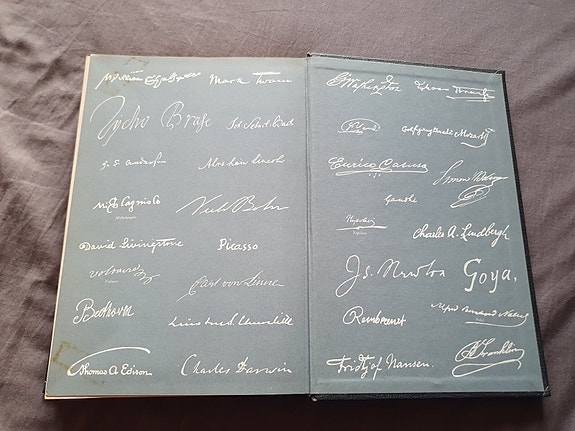 William Shakespeare Mark Twain
Tycho Brahe Joh. Sebast. Bach
Abraham Lincoln
Michelangelo
Niels Bohr
David Livingstone Picasso
Voltaire
Carl von Linné
Beethoven
Winston S. Churchill
Thomas A Edison Charles Darwin
G Washington
Wolfgang Amadé Mozart
Enrico Caruso
Simon Bolivar
Gandhi
Napoleon
Charles A. Lindbergh
Is. Newton Goya.
Rembrandt
Alfred Bernhard Nobel
Fridtjof Nansen. B Franklin